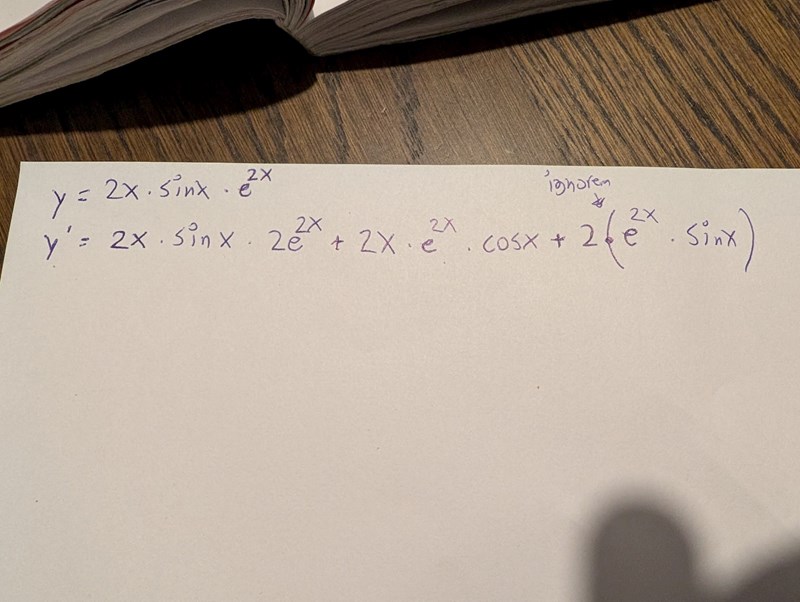 y = 2x · sinx · e^2x
ignorem
y' = 2x · sinx · 2e^2x + 2x · e^2x · cosx + 2·(e^2x · sinx)